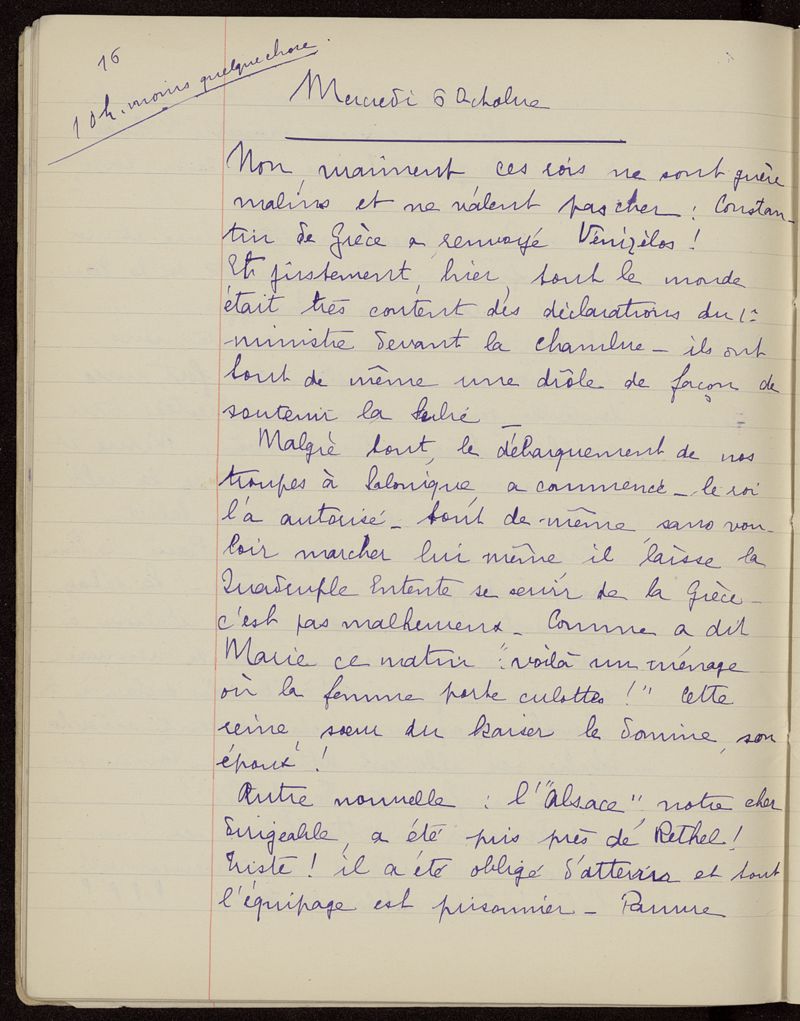 16
10h. moins quelque chose.
Mercredi 6 Octobre
Non, vraiment ces rois ne sont guère
malins et ne valent pas cher : Constan-
tin de Grèce a renvoyé Vénizélos !
Et justement, hier, tout le monde
était très content des déclarations du 1er
ministre devant la chambre - ils ont
tout de même une drôle de façon de
soutenir la Serbie -
Malgré tout, le débarquement de nos
troupes à Salonique a commencé - le roi
l'a autorisé - tout de même sans vou-
loir marcher lui même il laisse la
Quadruple Entente se servir de la Grèce -
c'est pas malheureux - Comme a dit
Marie ce matin "voilà un ménage
où la femme porte culottes !" Cette
reine, sœur du kaiser le domine, son
époux !
Autre nouvelle : l'"Alsace", notre cher
dirigeable, a été pris près de Rethel !
Triste ! il a été obligé d'atterrir et tout
l'équipage est prisonnier - Pauvre